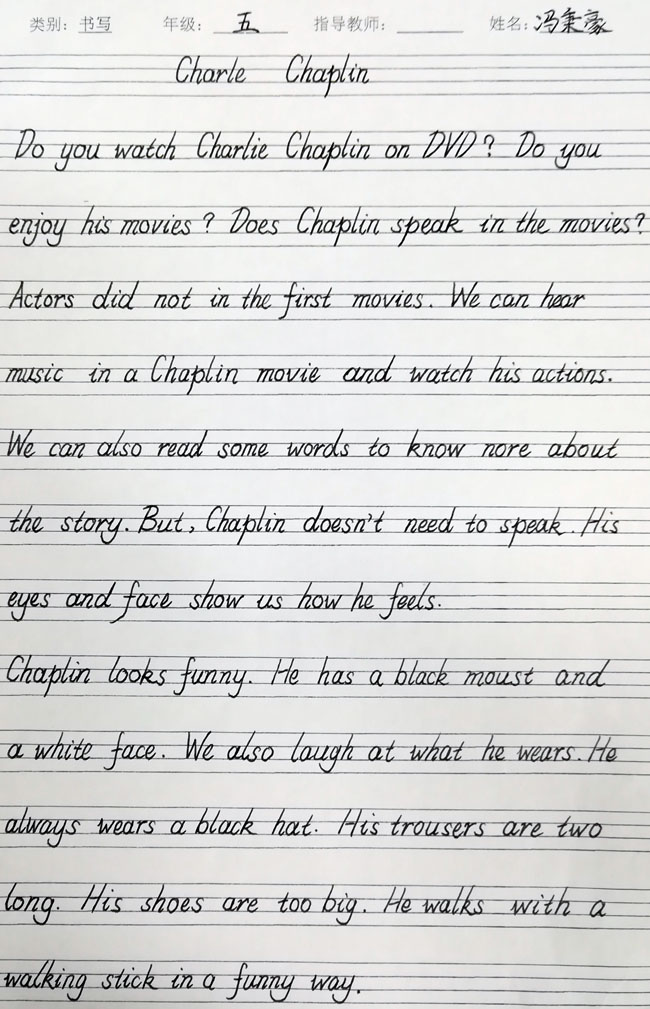 类别: 书写 年级: 五 指导教师: 姓名: 冯秉豪
Charle Chaplin
Do you watch Charlie Chaplin on DVD? Do you
enjoy his movies? Does Chaplin speak in the movies?
Actors did not in the first movies. We can hear
music in a Chaplin movie and watch his actions.
We can also read some words to know nore about
the story. But, Chaplin doesn't need to speak. His
eyes and face show us how he feels.
Chaplin looks funny. He has a black moust and
a white face. We also laugh at what he wears. He
always wears a black hat. His trousers are two
long. His shoes are too big. He walks with a
walking stick in a funny way.